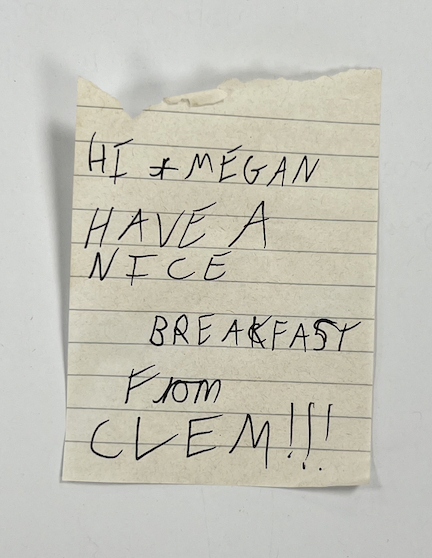 HI * MEGAN
HAVE A
NICE
BREAKFAST
From
CLEM!!!